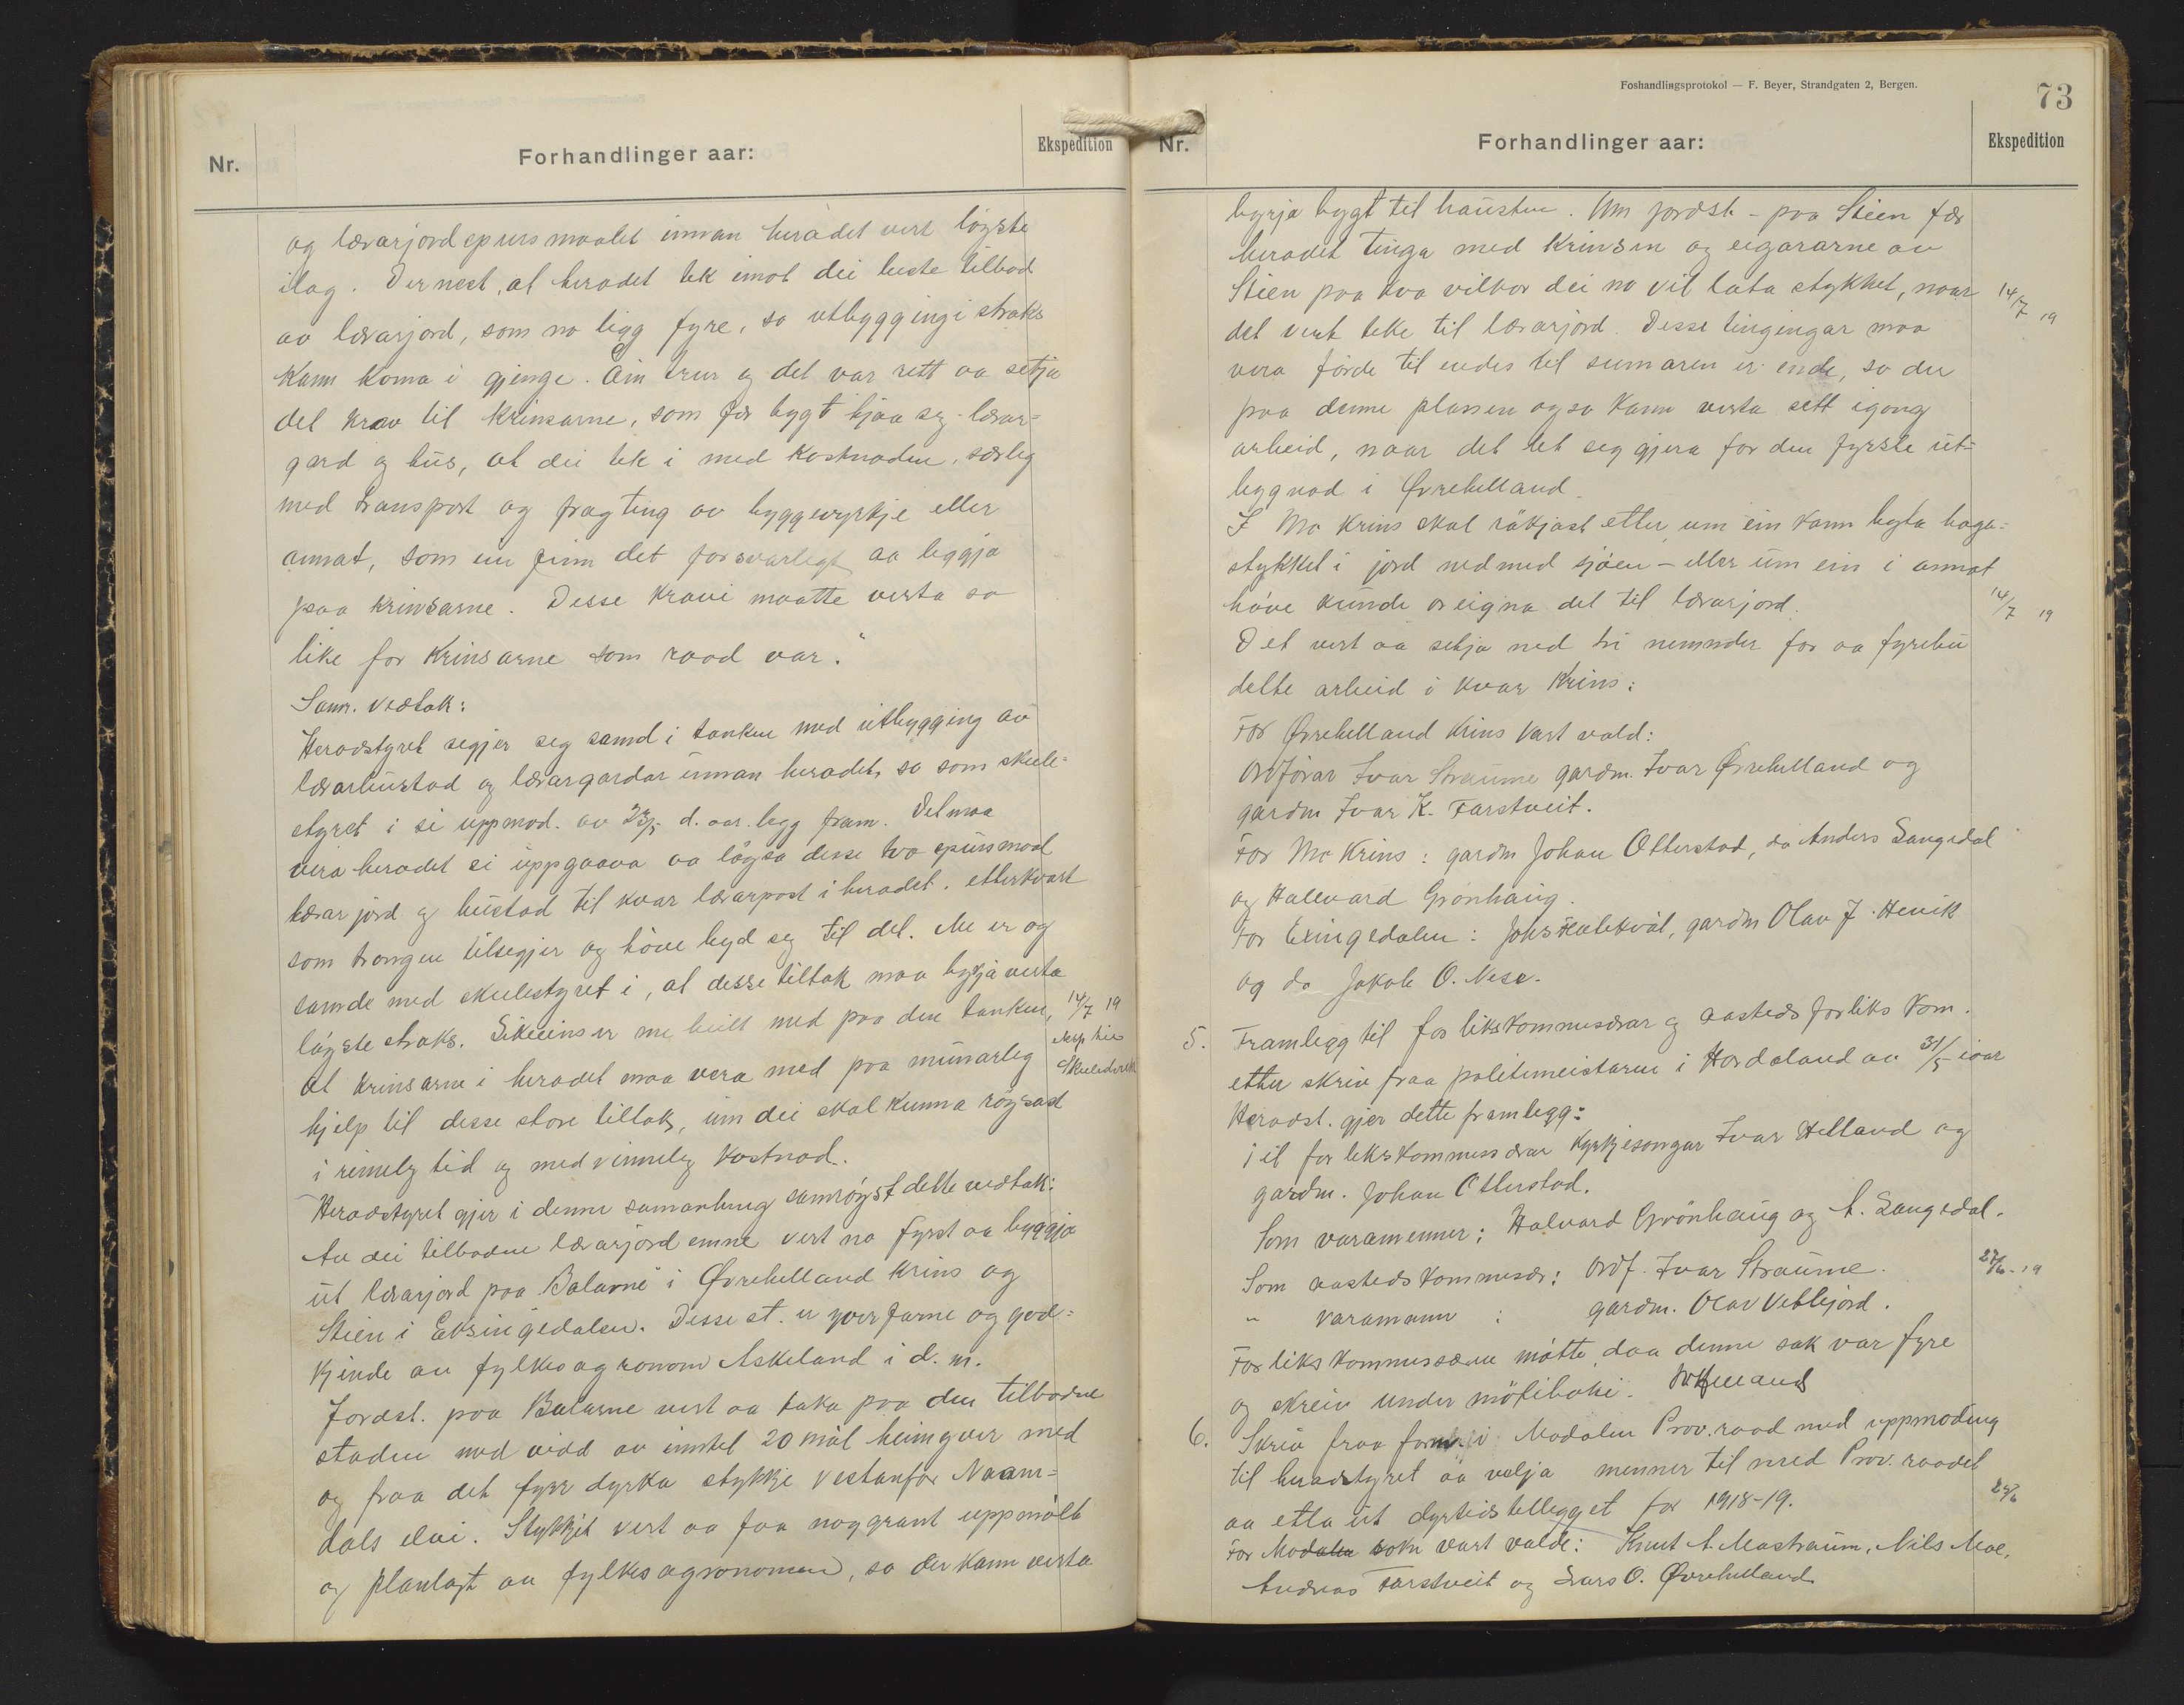 Nr.
Forhandlinger aar:
Ekspedition
og lærarjordspursmaalet innan heradet vert løyste
ilag. Dernest, at heradet tek imot dei beste tilbod
av lærarjord, som no ligg fyre, so utbyggingi straks
kann koma i gjenge. Ein trur og det var rett aa setja
det krav til krinsarne, som fær bygt hjaa seg lærar-
gard og hus, at dei tek i med kostnaden, særleg
med transport og fragting av byggevyrkje eller
annat, som ein finn det forsvarlegt aa leggja
paa krinsarne. Desse kravi maatte verta so
like for krinsarne som raad var."
Samr. vedtak:
Heradstyret segjer seg samd i tanken med utbygging av
lærarbustad og lærargardar innan heradet, so som skule-
styret i si uppmod. av 23/5 d. aar. legg fram. Det maa
vera heradet si uppgaava aa løysa desse two spursmaal
lærarjord og bustad til kvar lærarpost i heradet. etterkvart
som trongen tilsegjer og høve byd seg til det. Me er og
samde med skulestyret i, at desse tiltak maa byrja verta
løyste straks. Likeeins er me heilt med paa den tanken,
at krinsarne i heradet maa vera med paa munarleg
hjelp til desse store tiltak, um dei skal kunna røysast
i rimeleg tid og med vinneleg kostnad.
14/7 19
Skuledirekt
Heradstyret gjer i denne samanheng samrøyst dette vedtak:
Av dei tilbodne lærarjordemne vert no fyrst aa byggja
ut lærarjord paa "Balarne" i Øvrehelland krins og
Stien i Eksingedalen. Desse st. er yverfarne og god-
kjende av fylkesagronom Askeland i d. m.
Jordst. paa Balarne vert aa taka paa den tilbodne
staden med vidd av inntil 20 mål heimyver med
og fraa det fyrr dyrka stykkje vestanfor Naam-
dals elvi. Stykkjet vert aa faa noggrant uppmålt
og planlagt av fylkesagronomen, so der kann verta
Foshandlingsprotokol — F. Beyer, Strandgaten 2, Bergen.
73
Nr.
Forhandlinger aar:
Ekspedition
byrja bygt til hausten. Um jordst - paa Stien fær
heradet tinga med krinsen og eigararne av
Stien paa kva vilkor dei no vil lata stykket, naar
14/7 19
det vert teke til lærarjord. Desse tingingar maa
vera førde til endes til sumaren er ende, so der
paa denne plassen ogso kann verta sett igong
arbeid, naar det let seg gjera for den fyrste ut-
bygnad i Øvrehelland.
I Mo krins skal røkjast etter um ein kann byta haga-
stykket i jord nedmed sjøen - eller um ein i annat
høve kunde oreigna det til lærarjord.
14/7 19
Det vert aa setja ned tri nemnder for aa fyrebu
dette arbeid i kvar krins:
For Øvrehelland krins vart vald:
Ordførar Ivar Straume gardm. Ivar Øvrehelland og
gardm Ivar K. Farstveit.
For Mo Krins: gardm Johan Otterstad, do Anders Langedal
og Hallvard Grønhaug.
For Exingedalen: Johs gardm Olav J. Henik
og do Jakob O. Nese.
5. Framlegg til forlikskommisærar og aastedsforliks kom.
etter skriv fraa politimeistaren i Hordaland av 31/5 iaar
Heradst. gjer dette framlegg:
Til forlikskommissærar Kyrkjesongar Ivar Helland og
gardm. Johan Otterstad.
Som varamenner: Halvard Grønhaug og A. Langedal.
Som aastedskommisær: Ordf. Ivar Straume.
27/6 - 19
" varamann : gardm. Olav Vetlejord.
Forlikskommissæren møtte daa denne sak var fyre
og skreiv under møteboki. IvHelland
6. Skriv fraa form. i Modalen Prov.raad med uppmoding
til heradstyret aa velja menner til med Prov. raadet
aa etla ut dyrtidstillegget for 1918-19.
24/6
For Modalen sokn vart valde: Knut A. Mostraum, Nils Moe,
Andreas Farstveit og Lars O. Øvrehelland